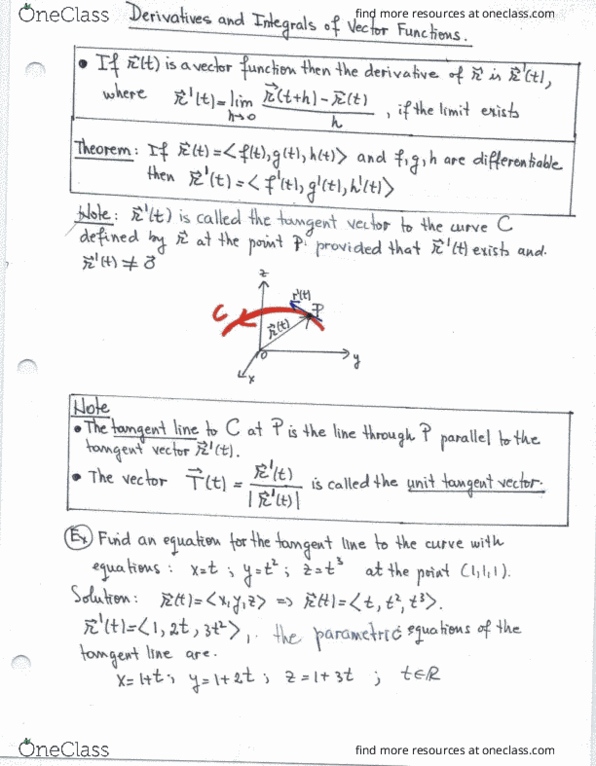 OneClass
find more resources at oneclass.com
Derivatives and Integrals of Vector Functions.
• If r⃗(t) is a vector function then the derivative of r⃗ is r⃗'(t),
where r⃗'(t) = lim h→0 (r⃗(t+h) - r⃗(t))/h , if the limit exists
Theorem: If r⃗(t) = <f(t), g(t), h(t)> and f, g, h are differentiable
then r⃗'(t) = <f'(t), g'(t), h'(t)>
Note: r⃗'(t) is called the tangent vector to the curve C
defined by r⃗ at the point P. provided that r⃗'(t) exists and
r⃗'(t) ≠ 0⃗
z
C
r'(t)
P
r⃗(t)
O
y
x
Note
• The tangent line to C at P is the line through P parallel to the
tangent vector r⃗'(t).
• The vector T⃗(t) = r⃗'(t)/|r⃗'(t)| is called the unit tangent vector.
Ex Find an equation for the tangent line to the curve with
equations: x=t ; y=t² ; z=t³ at the point (1,1,1).
Solution: r⃗(t) = <x,y,z> => r⃗(t) = <t, t², t³>.
r⃗'(t) = <1, 2t, 3t²>, the parametric equations of the
tangent line are.
x=1+t ; y=1+2t ; z=1+3t ; t∈R
OneClass
find more resources at oneclass.com